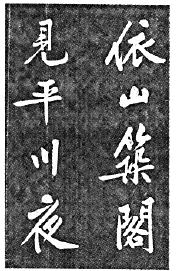 依山築閣
見平川夜